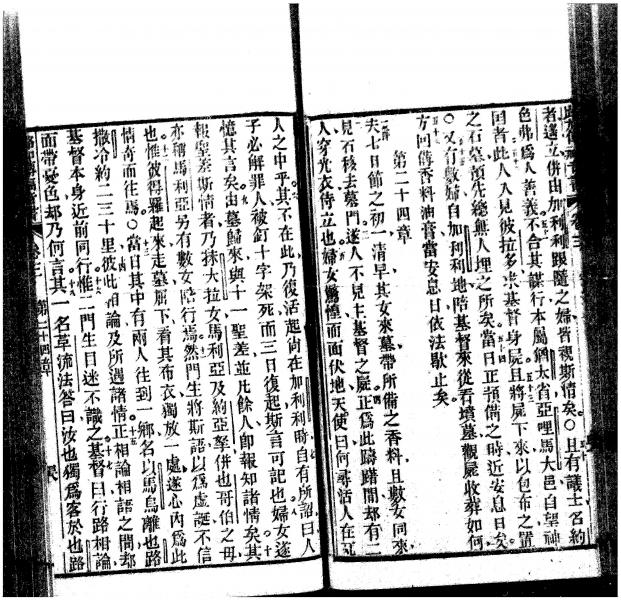 者遠立併由加利利跟隨之婦皆視斯情矣○且有議士名約
色弗爲人善義不合其謀行本屬猶太省亞哩馬大邑自望神
國者此人入見彼拉多求基督身屍且將屍下來以包布之置
之石墓預先總無人埋之所矣當日正預備之時近安息日矣
○又有數婦自加利利地陪基督來從看墳墓觀屍收葬如何
方回備香料油膏當安息日依法歇止矣
第二十四章
夫七日節之初一清早其女來墓帶所備之香料且數女同來
見石移去墓門遂入不見主基督之屍正爲此躊躇間却有二
人穿光衣侍立也婦女驚惶而面伏地天使曰何尋活人在死
人之中乎其不在此乃復活起尚在加利利時自有所詔曰人
子必解罪人被釘十字架死而三日復起斯言可記也婦女遂
憶其言矣由墓歸來與十一聖差並凡餘人卽報知諸情矣其
報聖差斯情者乃抹大拉女馬利亞及約亞拏併也哥伯之母
亦稱馬利亞另有數女陪行焉然門生將斯語以爲虛誕不信
也惟彼得羅起來走墓屈下看其布衣獨放一處遂心內爲此
情奇而往焉○當日其中有兩人往到一鄉名以馬烏離也路
撒冷約二三十里彼此相論及所遇諸情正相論相語之間却
基督本身近前同行惟二門生目迷不識之基督曰行路相論
面帶憂色却乃何言其一名革流法答曰汝也獨爲客於也路
卷三 第二十四章